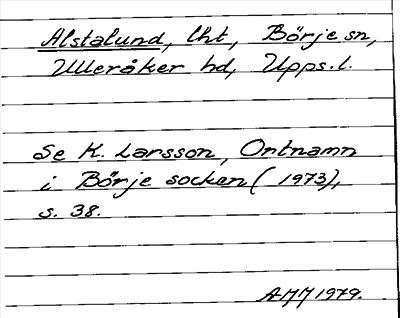 Alstalund, lht, Börje sn,
Ulleråker hd, Upps. l.
Se K. Larsson, Ortnamn
i Börje socken (1973),
s. 38.
AMM 1979.